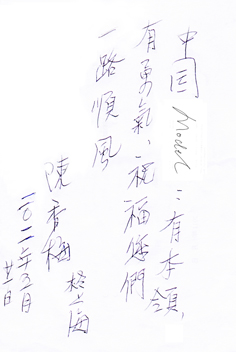 中国 Model：有本領
有勇氣：祝福您們
一路順風
陳香梅
於上海
二〇一一年五月
廿一日